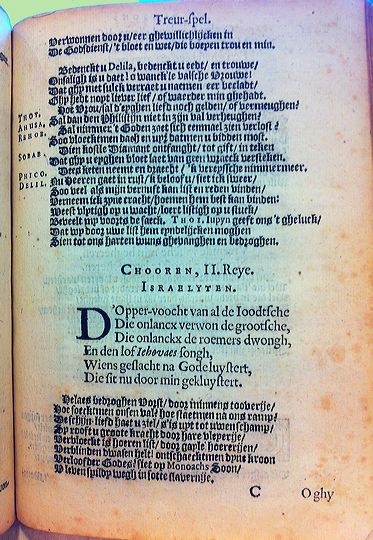 Treur-spel.
Verwonnen door u/eer ghewillichlijcken in
De Godsdienst/'t bloet en wet/die boeyen trou en min.
Bedenckt u Delila, bedenckt u eedt/ en trouwe/
Onsaligh is u daet! o wanck'le valsche Vrouwe!
Dat ghy met sulck verraet u naemen eer becladt/
Ghy hebt noyt liever lief / of waerder min ghehadt.
THOT. Hoe Vrou/sal d'eyghen liefd noch gelden/ of vermeughen?
AHUSA. Sal dan den Philistijn niet in zijn val verheughen?
REHOB. Sal nimmer 't Goden zaet sich eenmael zien verlost?
Soo bloeckmen daosh en wat datmen u bidden most.
SORAB. Dien kostle Diamant ontfanght/ tot gift/ in teken
Dat ghy u eyghen bloet laet van geen wraeck versteken.
PHICO. Dees keten neemt en draecht/ 'k verzysche nimmermeer.
DELIL. Nu Heeren gaet in rust/ ik beloof u/ siet ick sweer/
Soo veel als mijn vernuft kan list en reden vinden/
Verneem ick zyne cracht/hoemen hem best kan binden:
Weest vlytigh op u wacht/loert listigh op u stuck/
Beveelt my voorts de saeck. THOT. Iupyn geeft ons 't gheluck/
Dat wy door uwe list hem eyndelijcken moghen
Sien tot ons harten wuns ghevanghen en bedroghen.
CHOOREN, II. Reye.
ISRAELYTEN.
D'Opper-voocht van al de Ioodtsche
Die onlancx verwon de grootsche,
Die onlanckx de roemers dwongh,
En den lof Iehovaes songh,
Wiens geslacht na Gode luystert,
Die sit nu door min gekluystert.
Helaes bedroghen Vorst/ door minnens tooverije/
Hoe soecktmen onsen val? hoe staetmen na ons ramp?
De schijn-liefd haet u ziel/ s'is upt tot uwenschamp/
Sp rooft u groote kracht door hare vleyerije.
Verblockt is hoeren list/ door gaple hoererijen/
Verblinden dwasen helt! ontschaecktmen dyne kroon
Verloofder Godes? siet op Monoachs Soon/
V leven spildy wegh in sotte slavernije.
C
O ghy